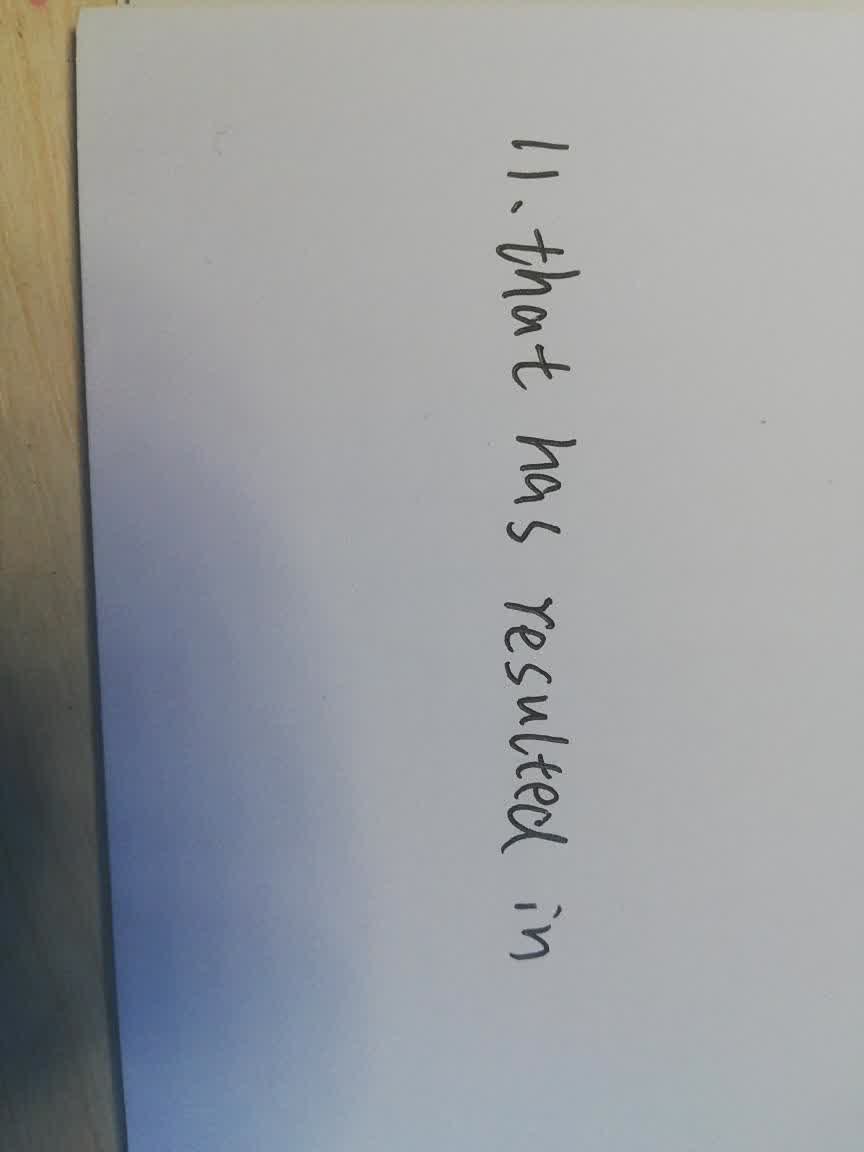 11. that has resulted in